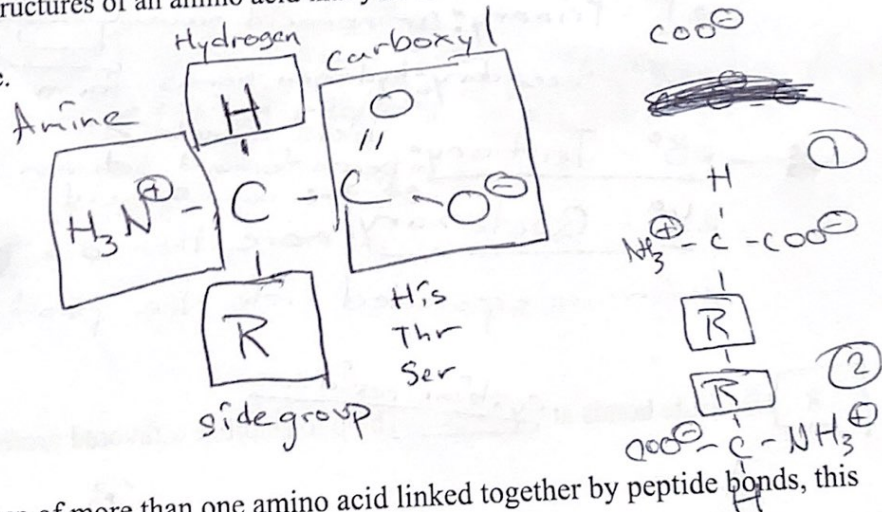 ructures of an amino acid
Hydrogen
Carboxyl
COO⊖
Amine
H
O
||
H₃N⊕ - C - C - O⊖
R
sidegroup
His
Thr
Ser
①
H
NH₃⊕ - C - COO⊖
R
②
R
COO⊖ - C - NH₃⊕
H
of more than one amino acid linked together by peptide bonds, this